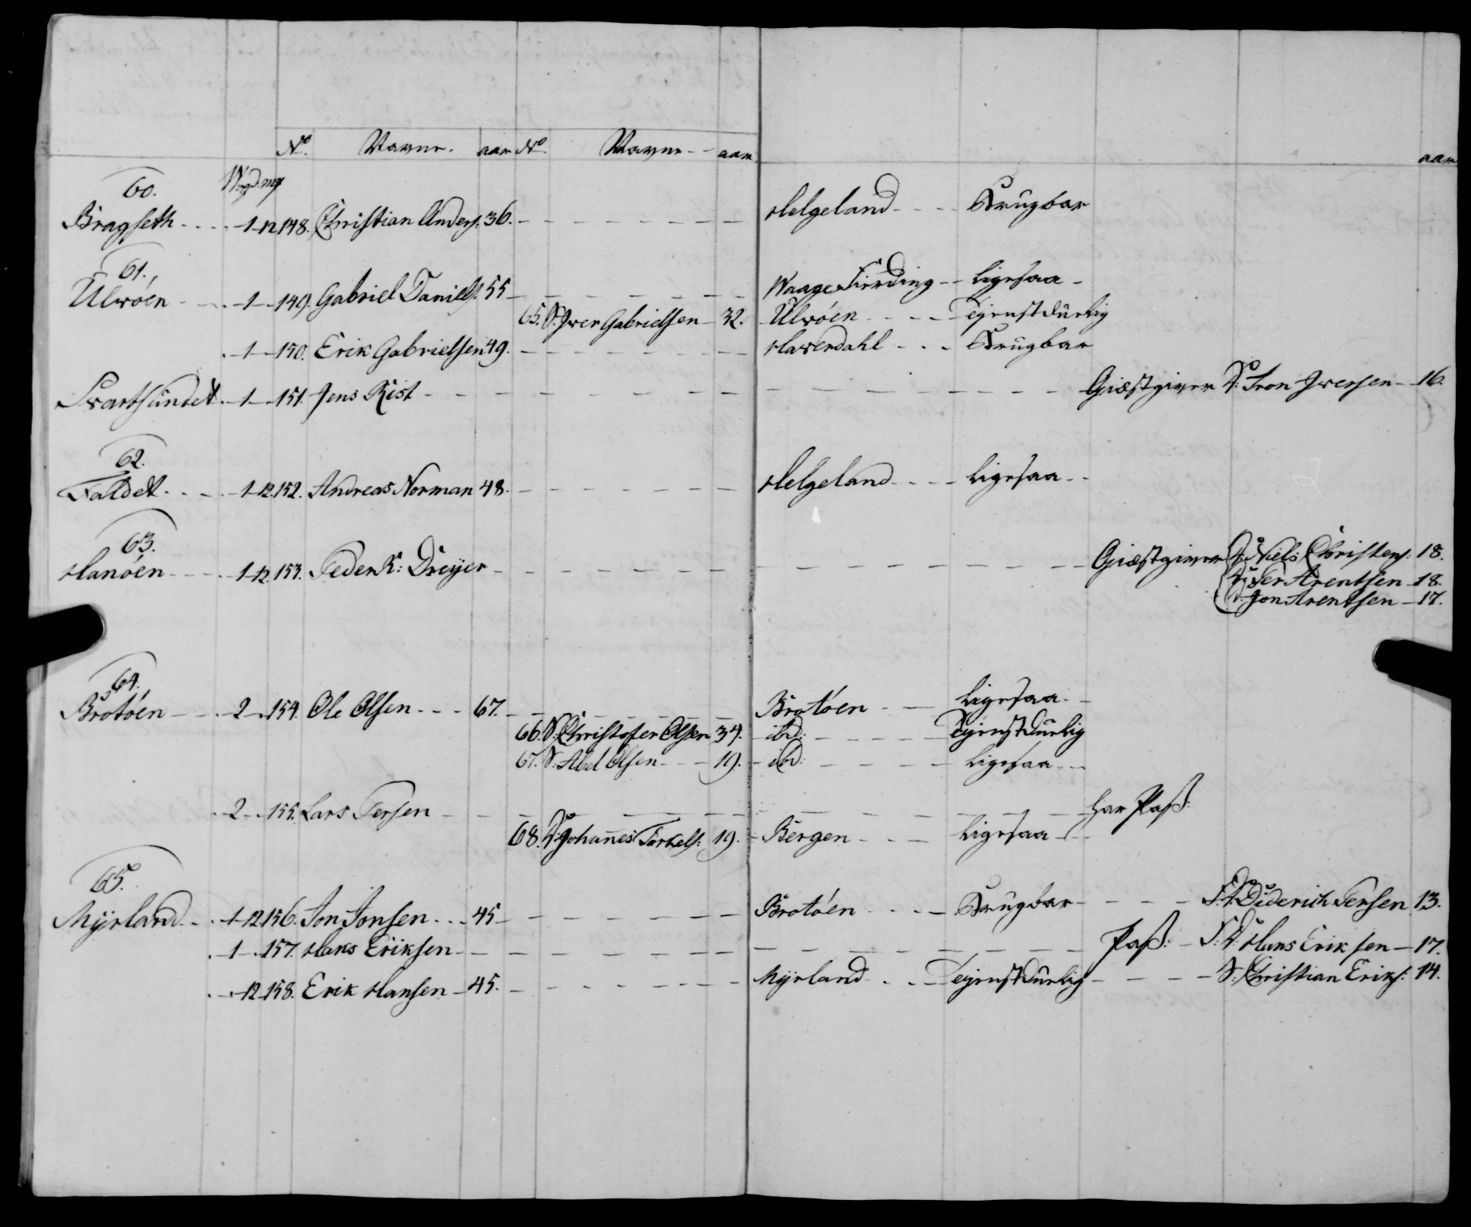 No. Navne. aar No Navne aar aar
60.
Bragseth 1 12 148. Christian Anders: 36. Helgeland Brugbar
61.
Ulwöen 1 149. Gabriel Daniels: 55 Waage Fierding ligesaa
65. S. Iwer Gabrielsen 32. Ulwöen Tjenstdürlig
1 150. Erik Gabrielsen 49. Hawerdahl Brügbar
Swartsundet 1 151. Jens Kist Giæstgiwer D: Tron Iwersen 16.
62.
Faldet 1 12 152. Andreas Norman 48. Helgeland ligesaa
63.
Hanöen 1 12 153. Peder K: Dreÿer Giæstgiwer D: Niels Christens: 18.
D: Per Arentsen 18.
D: Jon Arentsen 17.
64.
Brotöen 2 154. Ole Olsen 67. Brotöen ligesaa
66. S. Christofer Olsen 34. ibd: Tjenstdürlig
67. S. Abel Olsen 19. ibd: ligesaa
2 155. Lars Persen har Paß:
68. D: Johannes Torkels: 19. Bergen ligesaa
65.
Mÿrland 1 12 156. Jon Jonsen 45 Brotöen Brugbar P:D: Diderich Persen 13.
1 157. Hans Eriksen Paß: S:D: Hans Eriksen 17.
12 158. Erik Hansen 45. Mÿrland Tejenstdürlig S: Christian Eriks: 14.